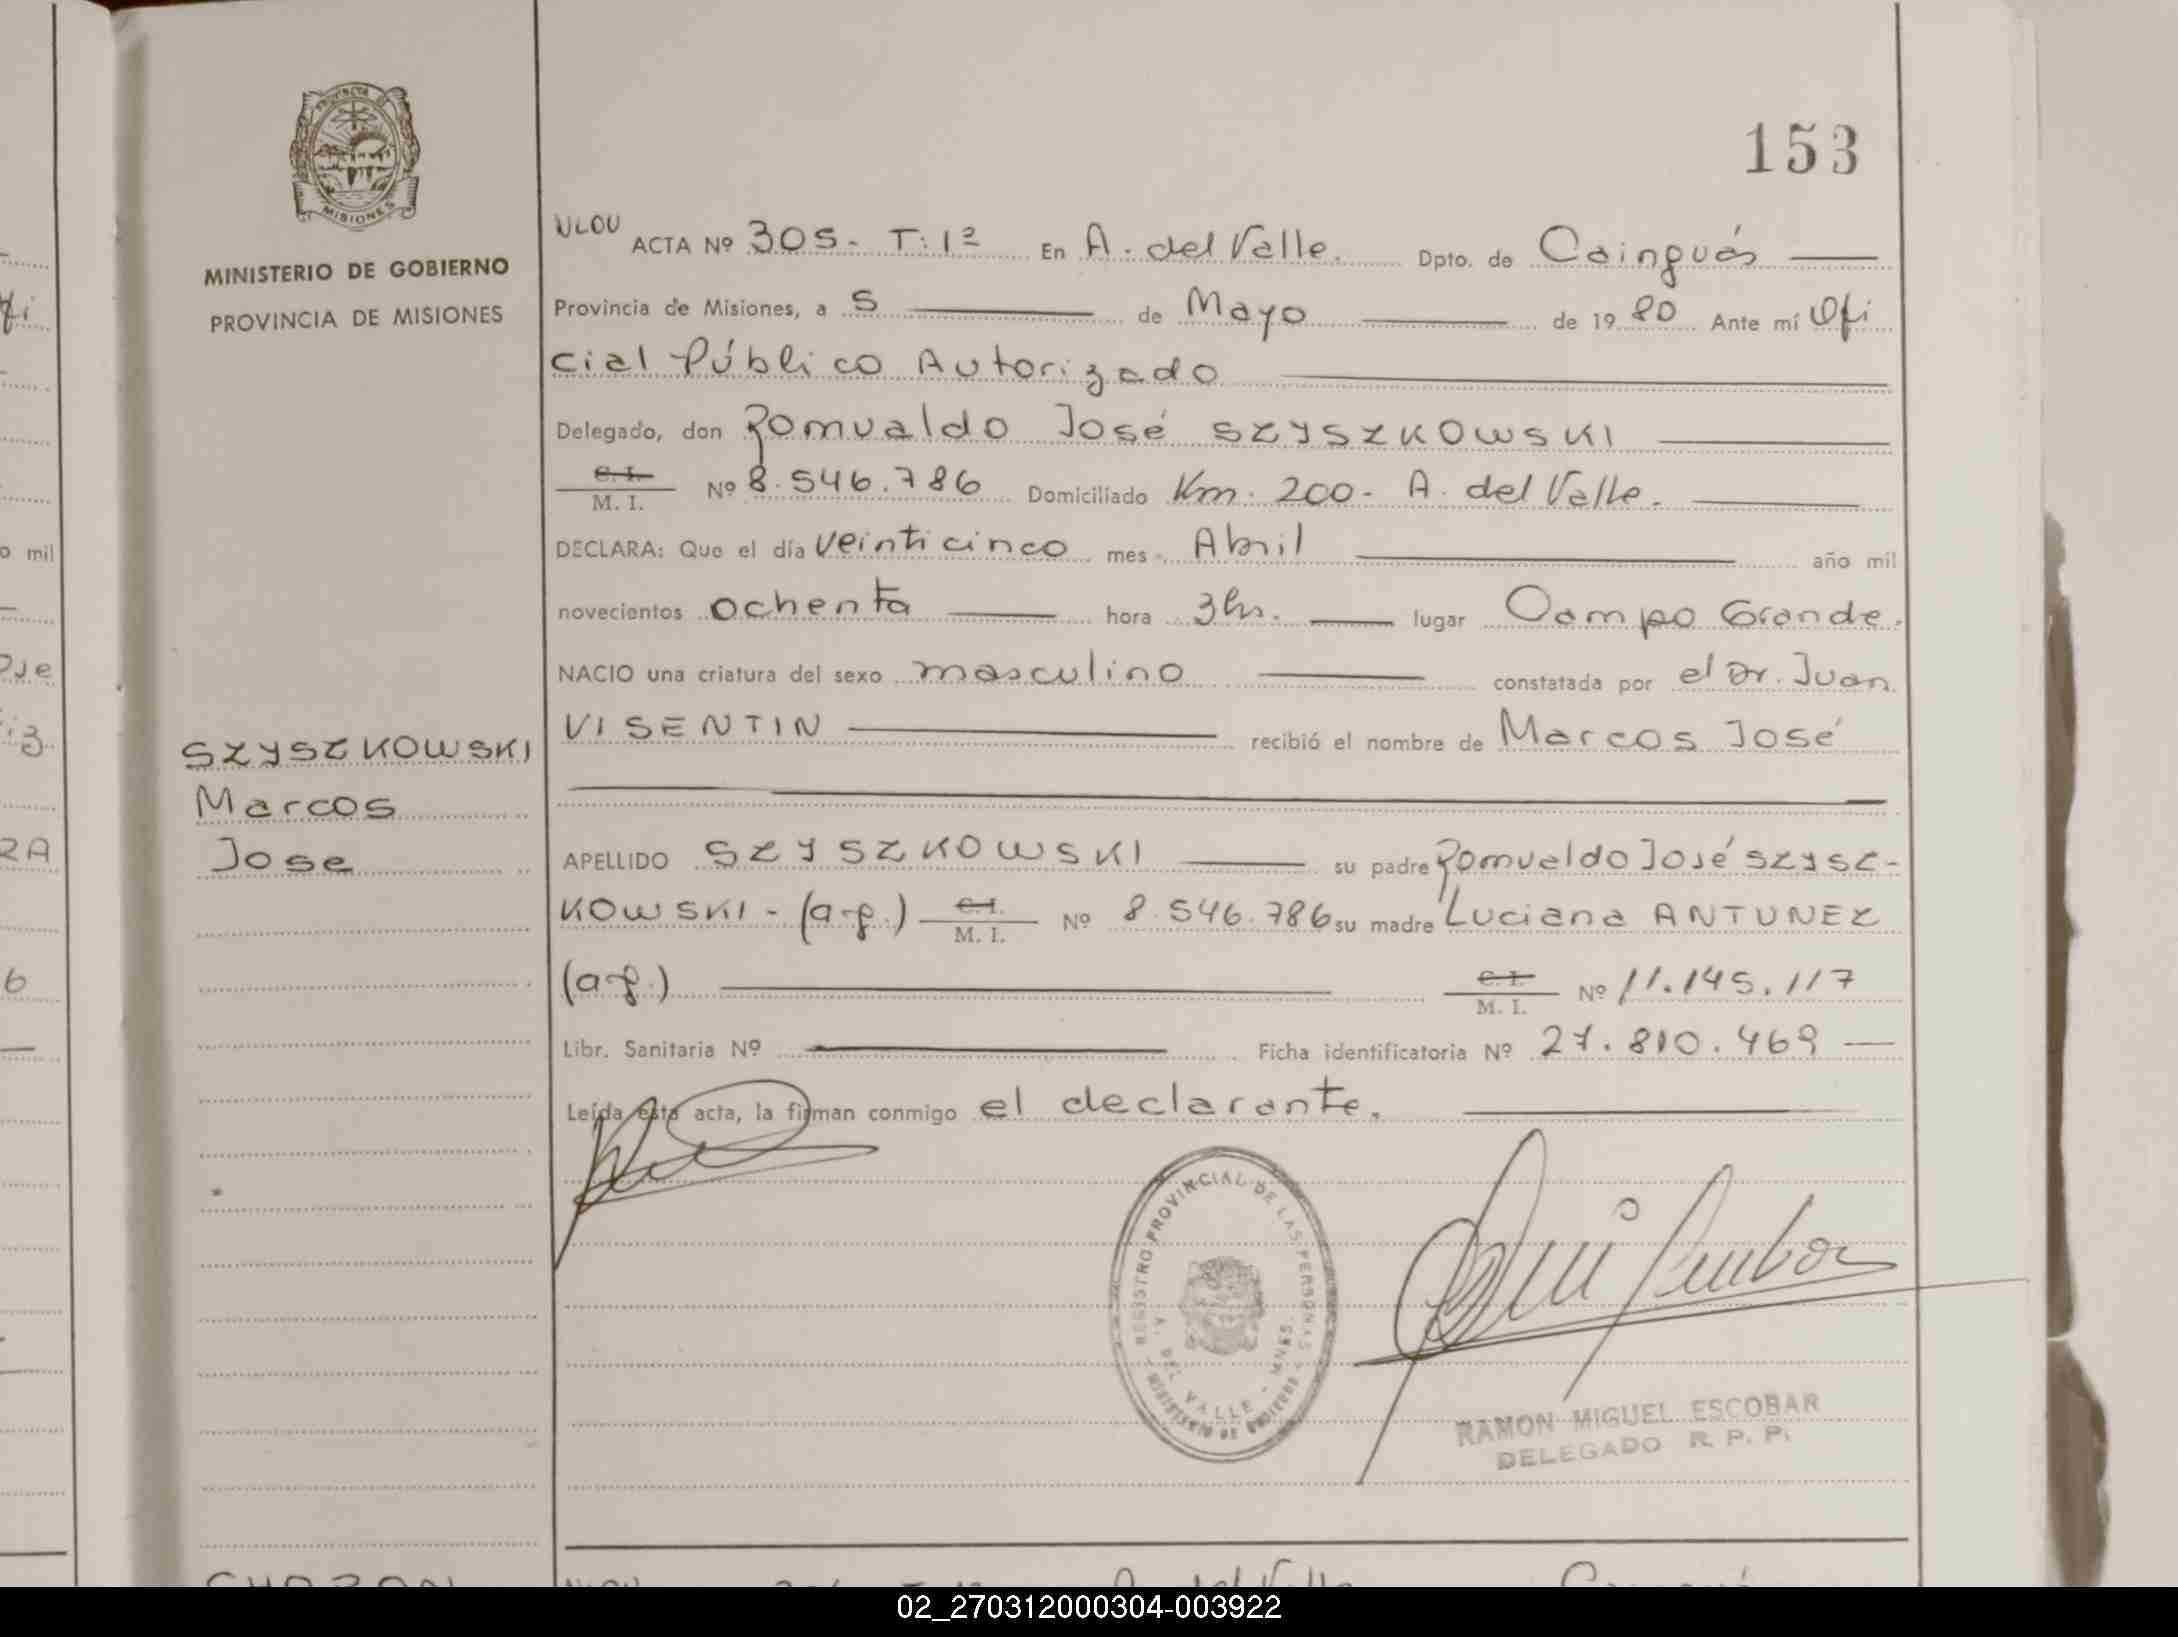 PROVINCIA DE
MISIONES
MINISTERIO DE GOBIERNO
PROVINCIA DE MISIONES
SZYSZKOWSKI
Marcos
Jose
153
ULOU ACTA Nº 305- T: 1ª En A. del Valle. Dpto. de Cainguás
Provincia de Misiones, a 5 de Mayo de 1980 Ante mí Ofi
cial Público Autorizado
Delegado, don Romualdo José SZYSZKOWSKI
C. I.
M. I. Nº 8.546.786 Domiciliado Km. 200- A. del Valle.
DECLARA: Que el día veinticinco mes Abril año mil
novecientos ochenta hora 3hs. lugar Campo Grande.
NACIO una criatura del sexo masculino constatada por el Dr. Juan
VISENTIN recibió el nombre de Marcos José
APELLIDO SZYSZKOWSKI su padre Romualdo José SZYSZ-
KOWSKI - (a-f.) C. I. M. I. Nº 8.546.786 su madre Luciana ANTUNEZ
(a-f.) C. I. M. I. Nº 11.145.117
Libr. Sanitaria Nº Ficha identificatoria Nº 27.810.469
Leída esta acta, la firman conmigo el declarante.
REGISTRO PROVINCIAL DE LAS PERSONAS
A. DEL VALLE - MNES.
MINISTERIO DE GOBIERNO
RAMON MIGUEL ESCOBAR
DELEGADO R. P. P.
02_270312000304-003922